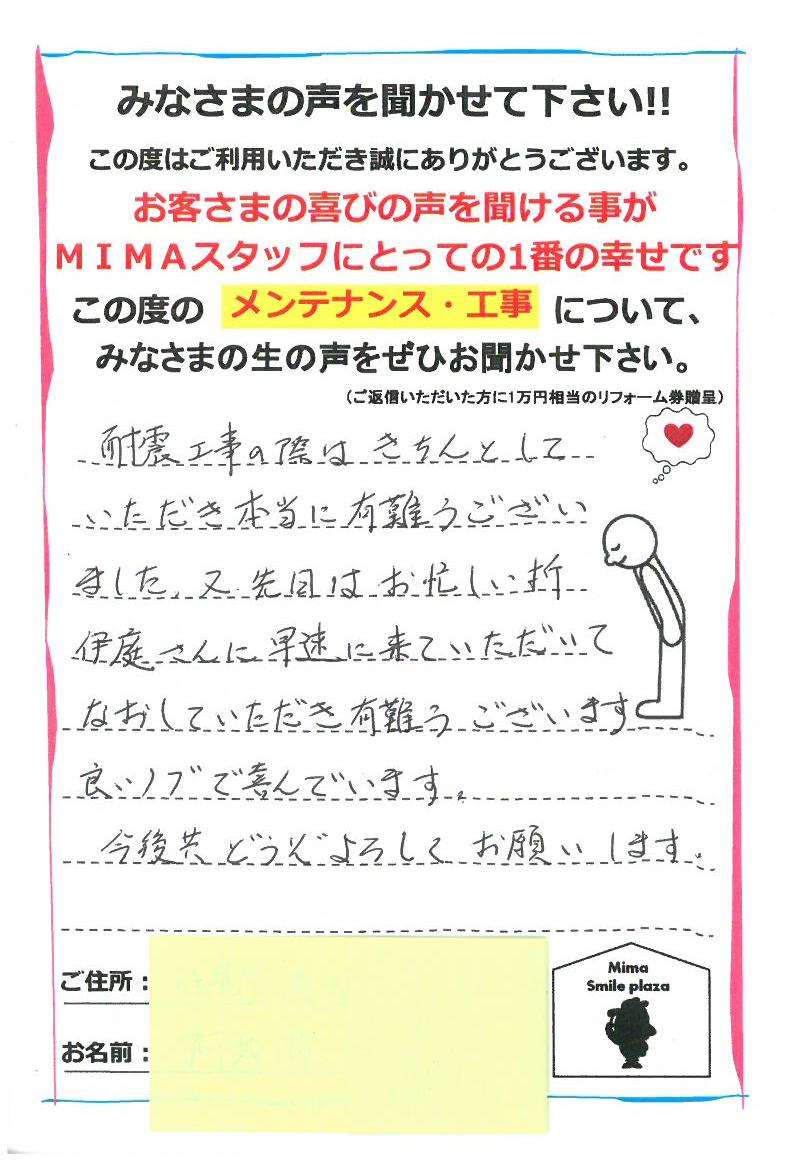 みなさまの声を聞かせて下さい!!
この度はご利用いただき誠にありがとうございます。
お客さまの喜びの声を聞ける事が
ＭＩＭＡスタッフにとっての1番の幸せです
この度の メンテナンス・工事 について、
みなさまの生の声をぜひお聞かせ下さい。
（ご返信いただいた方に1万円相当のリフォーム券贈呈）
耐震工事の際は きちんとして
いただき本当に有難うござい
ました。又 先日は お忙しい折
伊庭さんに早速に来ていただいて
なおしていただき有難う ございます
良いノブで喜んでいます。
今後共 どうぞ よろしく お願い します。
ご住所：
お名前：
Mima
Smile plaza